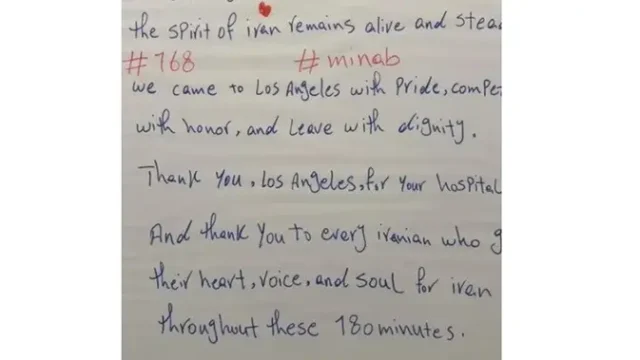 the spirit of iran remains alive and stead
#168 #minab
we came to Los Angeles with Pride, compe
with honor, and Leave with dignity.
Thank you, Los Angeles, for your hospital
And thank you to every iranian who g
their heart, voice, and soul for iran
throughout these 180 minutes.